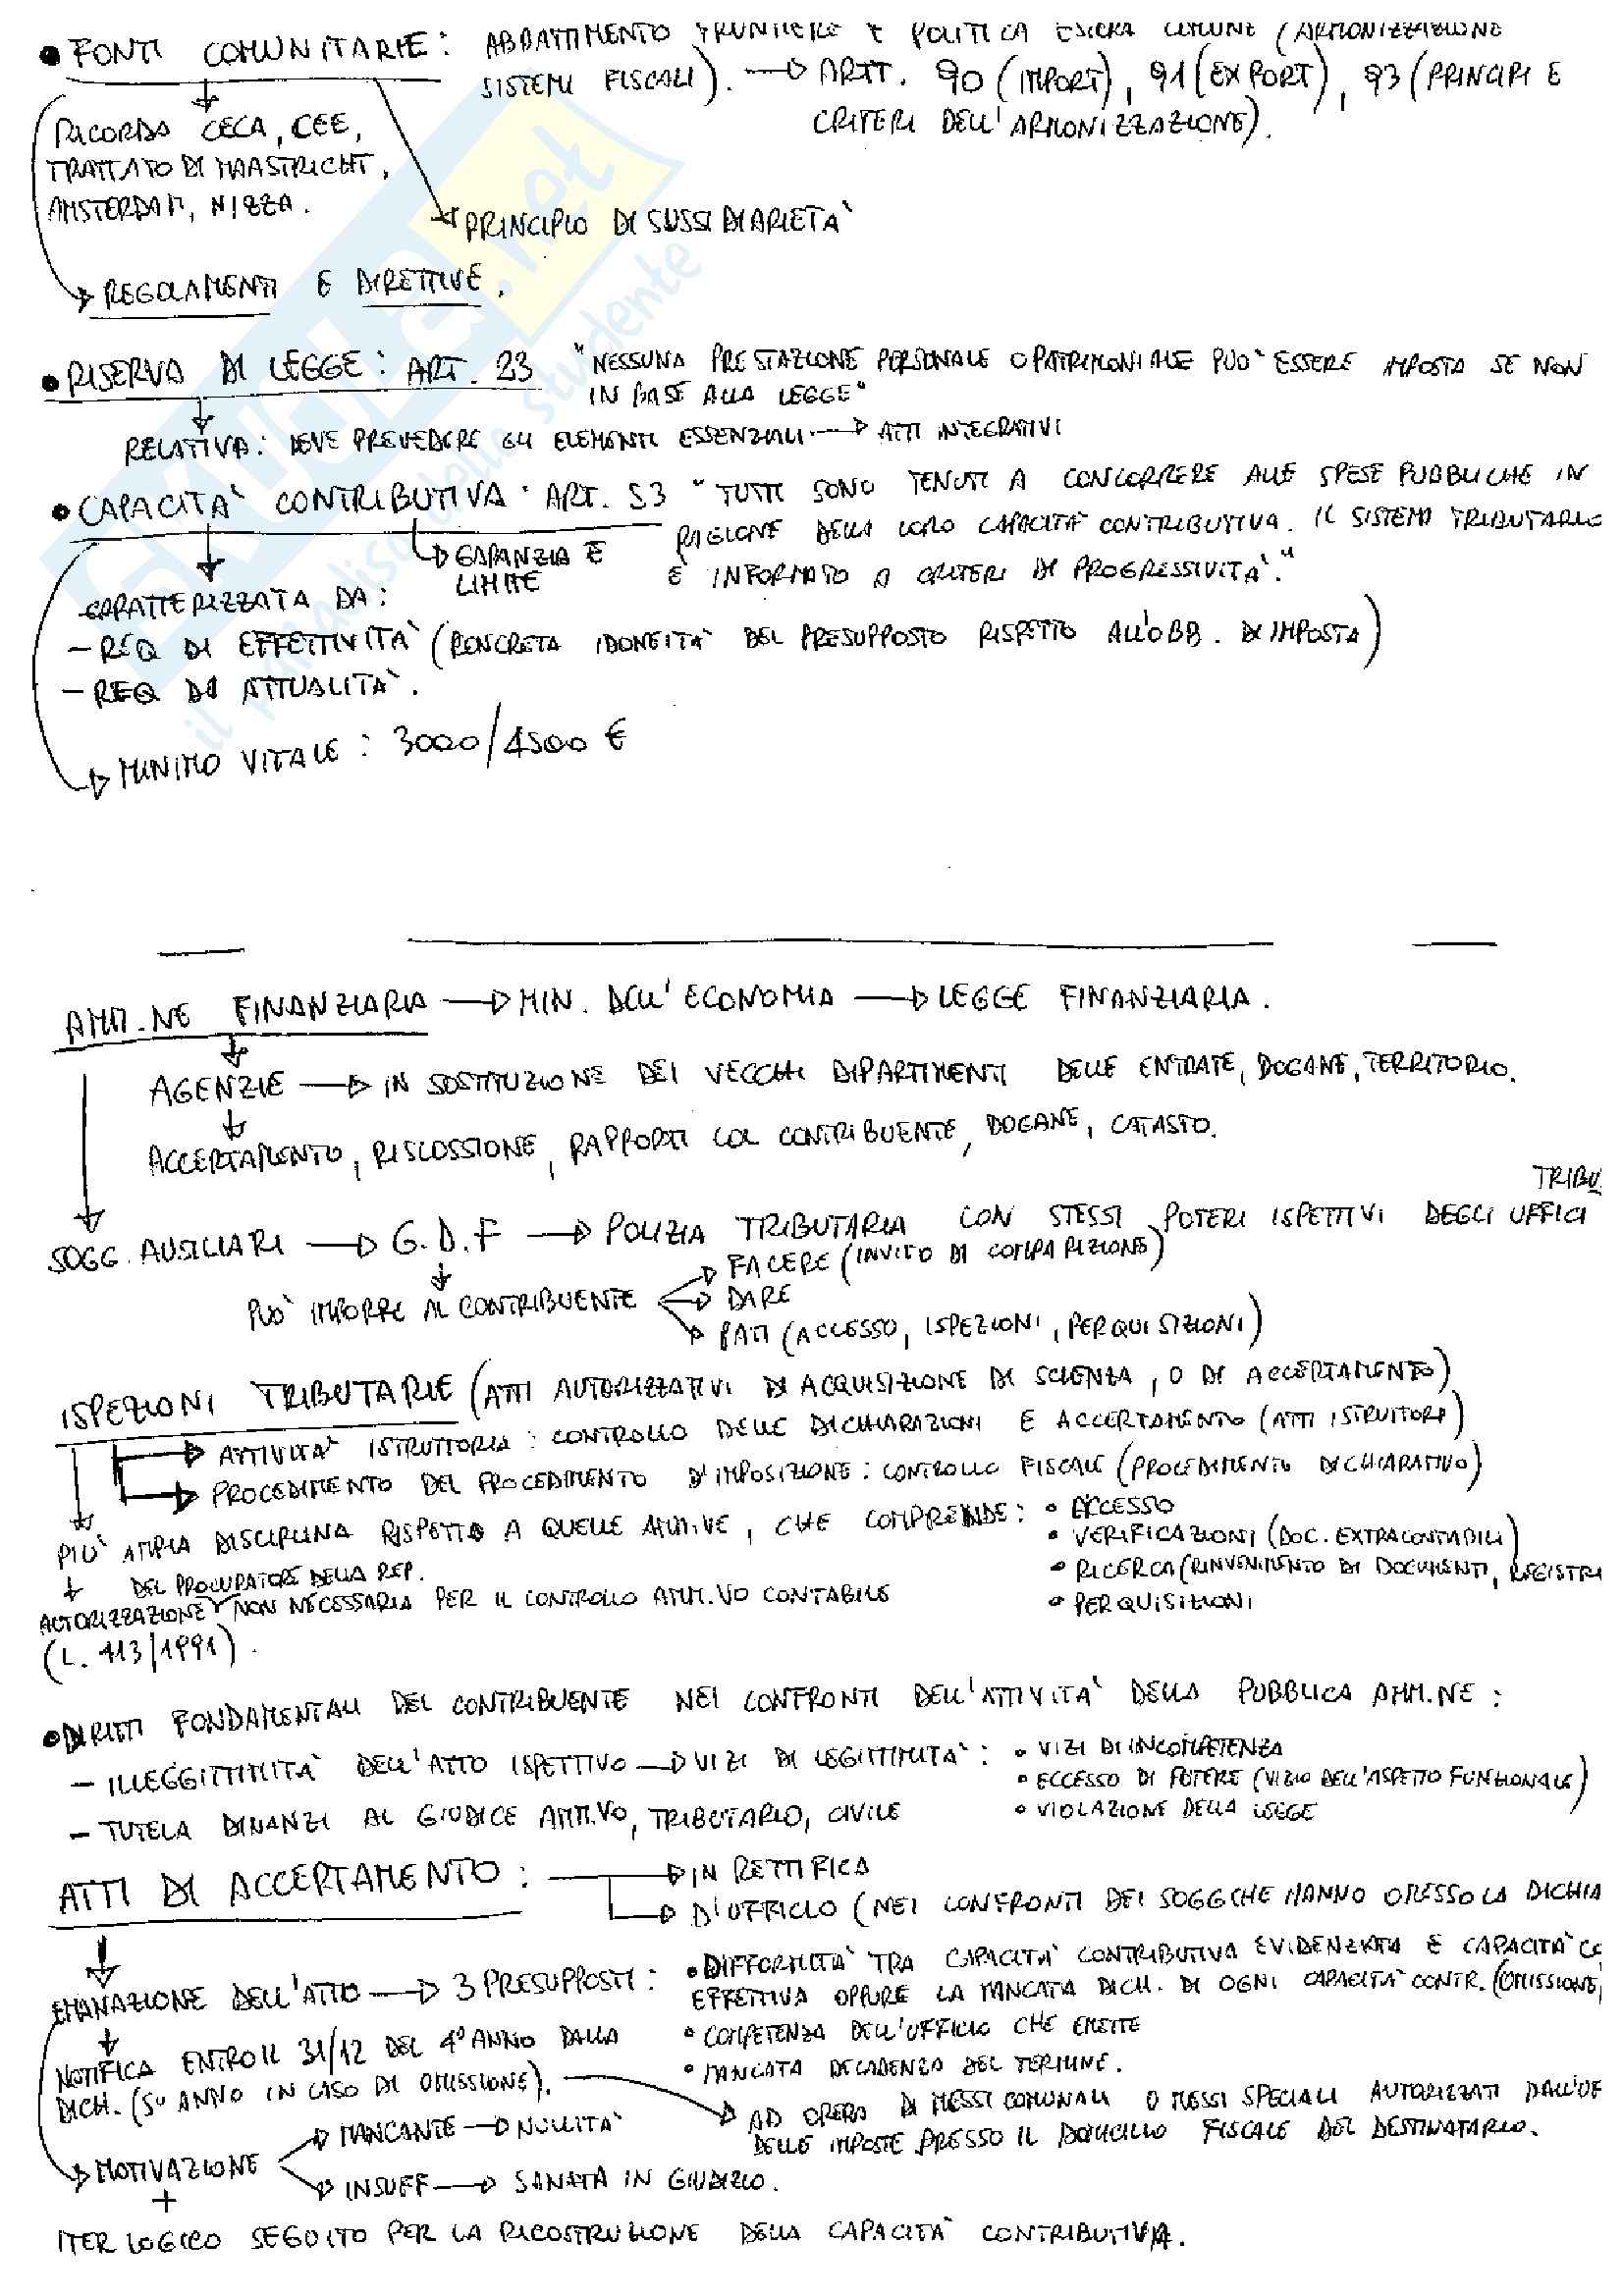 • FONTI COMUNITARIE: ABBATTIMENTO FRONTIERE E POLITICA ESTERA COMUNE (ARMONIZZAZIONE
SISTEMI FISCALI). → ARTT. 90 (IMPORT), 91 (EXPORT), 93 (PRINCIPI E
CRITERI DELL'ARMONIZZAZIONE).
RICORDA CECA, CEE,
TRATTATO DI MAASTRICHT,
AMSTERDAM, NIZZA.
PRINCIPIO DI SUSSIDIARIETA'
REGOLAMENTI E DIRETTIVE.
• RISERVA DI LEGGE: ART. 23 "NESSUNA PRESTAZIONE PERSONALE O PATRIMONIALE PUO' ESSERE IMPOSTA SE NON
IN BASE ALLA LEGGE"
RELATIVA: DEVE PREVEDERE GLI ELEMENTI ESSENZIALI → ATTI INTEGRATIVI
• CAPACITA' CONTRIBUTIVA: ART. 53 "TUTTI SONO TENUTI A CONCORRERE ALLE SPESE PUBBLICHE IN
RAGIONE DELLA LORO CAPACITA' CONTRIBUTIVA. IL SISTEMA TRIBUTARIO
E' INFORMATO A CRITERI DI PROGRESSIVITA'."
GARANZIA E
LIMITE
CARATTERIZZATA DA:
- REQ DI EFFETTIVITA' (CONCRETA IDONEITA' DEL PRESUPPOSTO RISPETTO ALL'OBB. DI IMPOSTA)
- REQ DI ATTUALITA'.
MINIMO VITALE: 3000/4500 €
AMM.NE FINANZIARIA → MIN. DELL'ECONOMIA → LEGGE FINANZIARIA.
AGENZIE → IN SOSTITUZIONE DEI VECCHI DIPARTIMENTI DELLE ENTRATE, DOGANE, TERRITORIO.
ACCERTAMENTO, RISCOSSIONE, RAPPORTI COL CONTRIBUENTE, DOGANE, CATASTO.
TRIBU
SOGG. AUSILIARI → G.D.F → POLIZIA TRIBUTARIA CON STESSI POTERI ISPETTIVI DEGLI UFFICI
PUO' IMPORRE AL CONTRIBUENTE
FACERE (INVITO DI COMPARIZIONE)
DARE
PATI (ACCESSO, ISPEZIONI, PERQUISIZIONI)
ISPEZIONI TRIBUTARIE (ATTI AUTORIZZATIVI DI ACQUISIZIONE DI SCIENZA, O DI ACCERTAMENTO)
ATTIVITA' ISTRUTTORIA: CONTROLLO DELLE DICHIARAZIONI E ACCERTAMENTO (ATTI ISTRUTTORI)
PROCEDIMENTO DEL PROCEDIMENTO D'IMPOSIZIONE: CONTROLLO FISCALE (PROCEDIMENTO DICHIARATIVO)
PIU' AMPIA DISCIPLINA RISPETTO A QUELLE AMM.IVE, CHE COMPRENDE: • ACCESSO
• VERIFICAZIONI (DOC. EXTRACONTABILI)
• RICERCA (RINVENIMENTO DI DOCUMENTI, REGISTRI
• PERQUISIZIONI
DEL PROCURATORE DELLA REP.
AUTORIZZAZIONE NON NECESSARIA PER IL CONTROLLO AMM.VO CONTABILE
(L. 413/1991).
• DIRITTI FONDAMENTALI DEL CONTRIBUENTE NEI CONFRONTI DELL'ATTIVITA' DELLA PUBBLICA AMM.NE:
- ILLEGGITTIMITA' DELL'ATTO ISPETTIVO → VIZI DI LEGITTIMITA': • VIZI DI INCOMPETENZA
• ECCESSO DI POTERE (VIZIO DELL'ASPETTO FUNZIONALE)
• VIOLAZIONE DELLA LEGGE
- TUTELA DINANZI AL GIUDICE AMM.VO, TRIBUTARIO, CIVILE
ATTI DI ACCERTAMENTO: → IN RETTIFICA
→ D'UFFICIO (NEI CONFRONTI DEI SOGG CHE HANNO OMESSO LA DICHIA
EMANAZIONE DELL'ATTO → 3 PRESUPPOSTI: • DIFFORMITA' TRA CAPACITA' CONTRIBUTIVA EVIDENZIATA E CAPACITA' CO
EFFETTIVA OPPURE LA MANCATA DICH. DI OGNI CAPACITA' CONTR. (OMISSIONE)
• COMPETENZA DELL'UFFICIO CHE EMETTE
• MANCATA DECADENZA DEL TERMINE.
NOTIFICA ENTRO IL 31/12 DEL 4° ANNO DALLA
DICH. (5° ANNO IN CASO DI OMISSIONE).
AD OPERA DI MESSI COMUNALI O MESSI SPECIALI AUTORIZZATI DALL'UF
DELLE IMPOSTE PRESSO IL DOMICILIO FISCALE DEL DESTINATARIO.
MOTIVAZIONE
MANCANTE → NULLITA'
INSUFF → SANATA IN GIUDIZIO.
+
ITER LOGICO SEGUITO PER LA RICOSTRUZIONE DELLA CAPACITA' CONTRIBUTIVA.